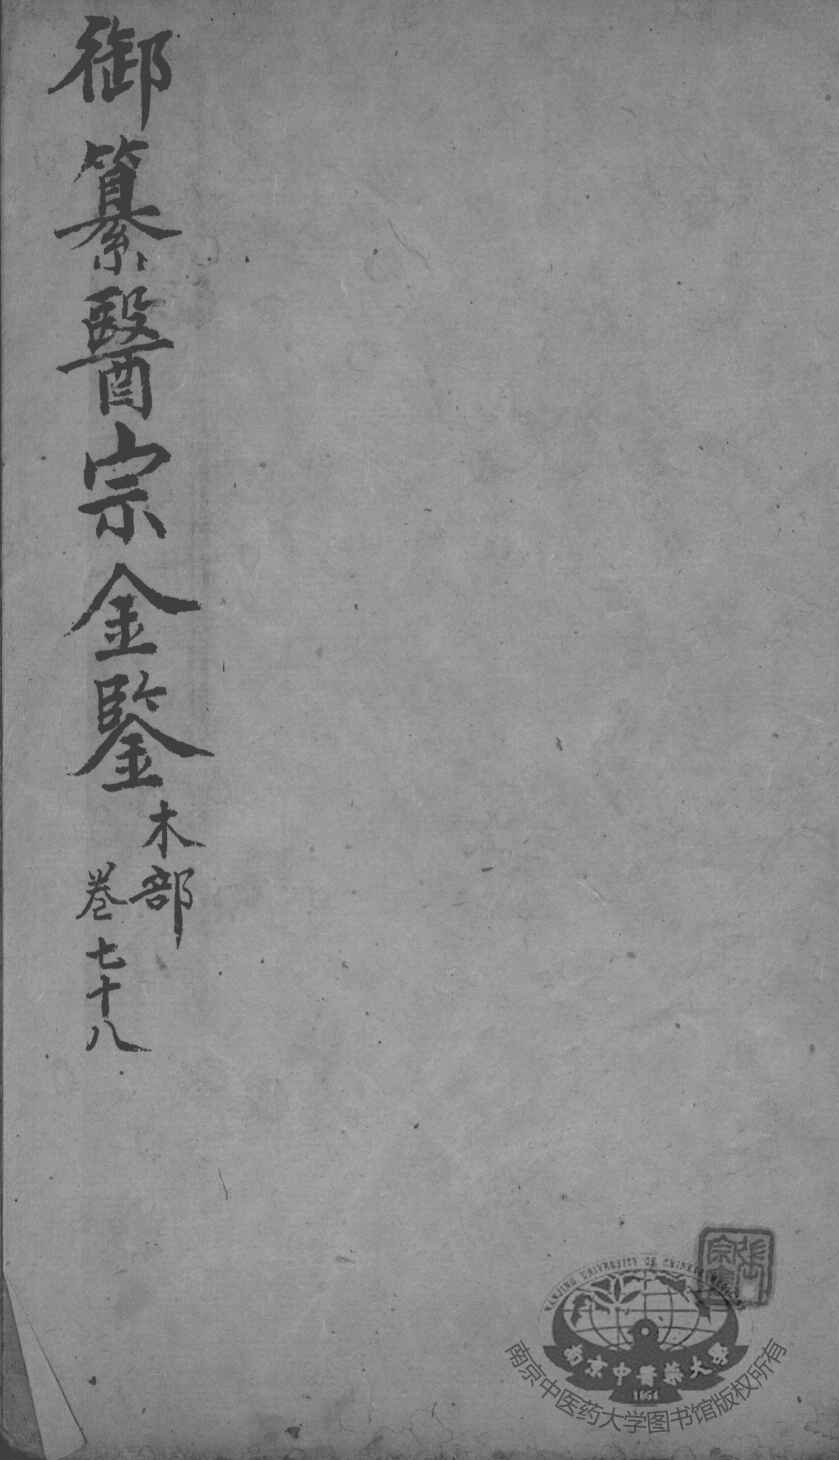 御纂醫宗金鑒
木部
卷七十八
NANJING UNIVERSITY OF CHINESE
南京中醫藥大學
1954
南京中医药大学图书馆版权所有